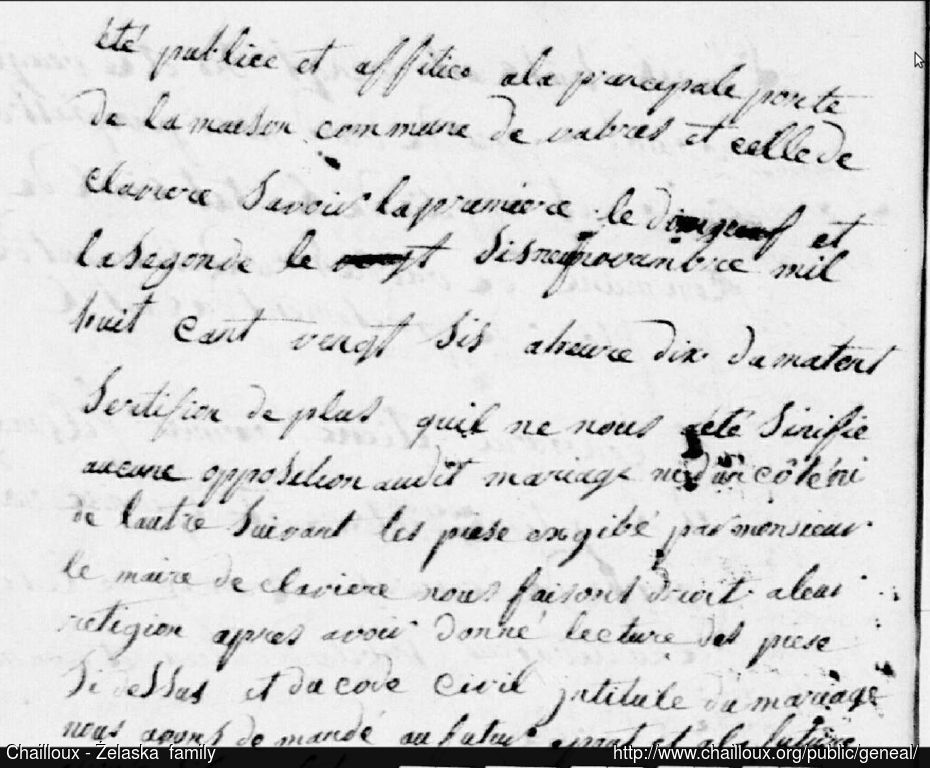 été publiee et affitiee ala prancipale porte
de la maeson commune de vabres et celle de
claviere Savoir la premiere le et
la Segonde le Sis novambre mil
huit cant vengt Sis aheure dix du matent
Sertifion de plus quil ne nous aété Sinifie
aucune opposition audit mariage ni côté ni
de lautre Suivant les piese exgibé par monsieur
le maire de claviere nous faisons droit aleur
retigion apres avoir donné lecture des piese
Si dessus et du code civil jntitule du mariage
nous avons demandé au futur epout et ala future
Chailloux - Żelaska family
http://www.chailloux.org/public/geneal/